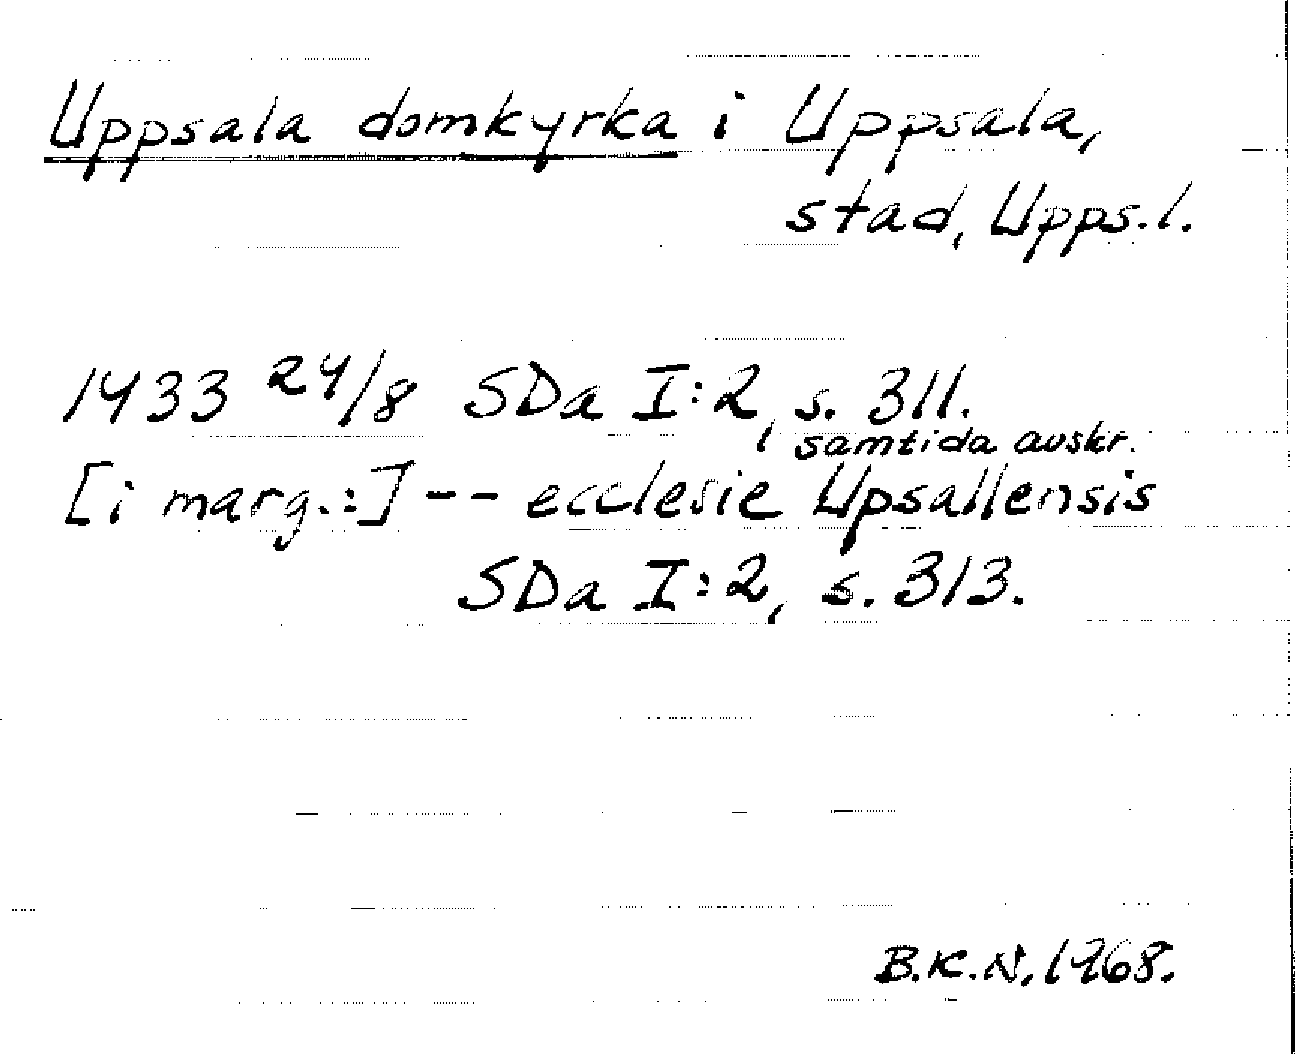 Uppsala domkyrka i Uppsala,
stad, Upps.l.
1433 24/8 SDa I:2, s. 311.
i samtida avskr.
[i marg.:] -- ecclesie Upsallensis
SDa I:2, s. 313.
B.K.N. 1968.